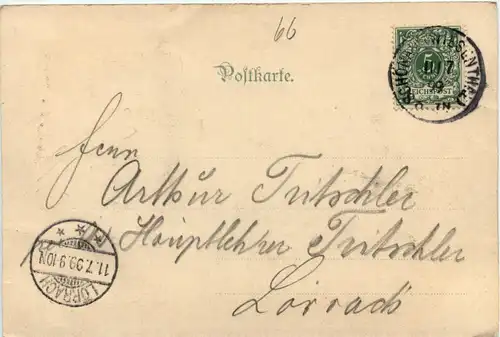 66
Postkarte.
5
REICHSPOST
SCHÖNAU WIESENTHAL
Herrn
Arthur Tritschler
Hauptlehrer Tritschler
Lörrach
LÖRRACH
11.7.99.9-10N